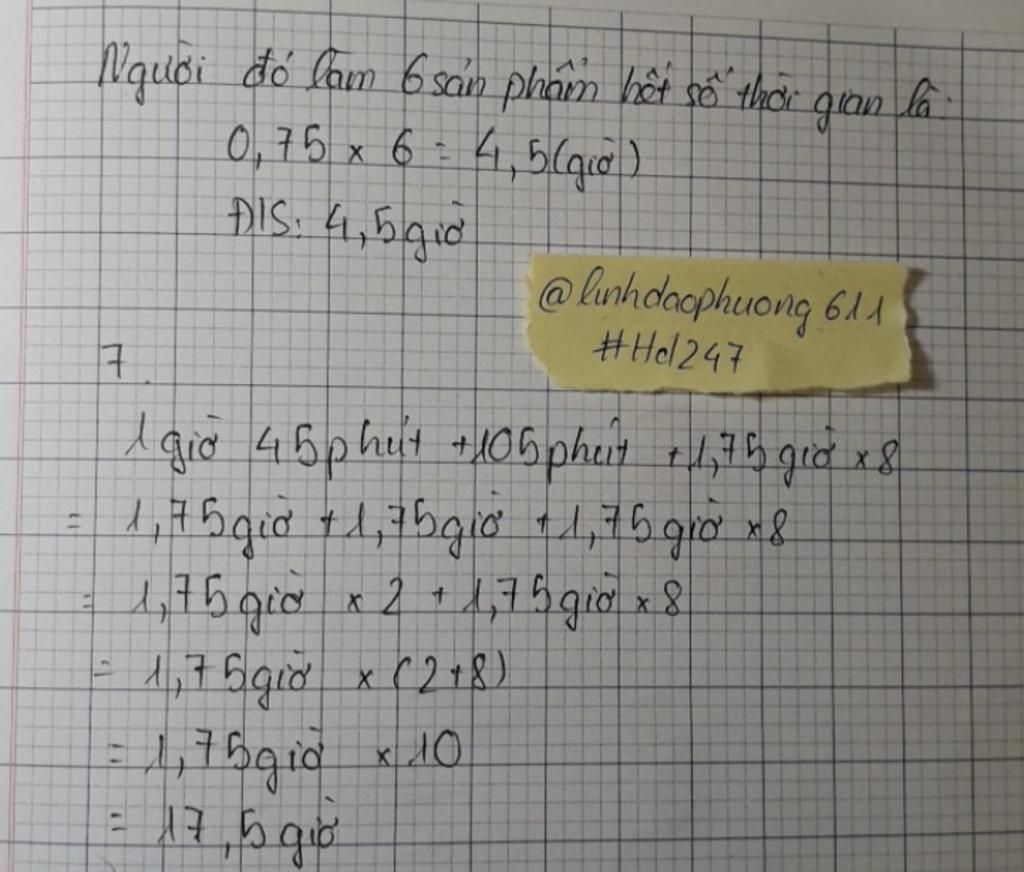 Người đó làm 6 sản phẩm hết số thời gian là:
0,75 × 6 = 4,5 (giờ)
Đ/S: 4,5 giờ
@linhdaophuong 611
#Hd247
7.
1 giờ 45 phút + 105 phút + 1,75 giờ × 8
= 1,75 giờ + 1,75 giờ + 1,75 giờ × 8
= 1,75 giờ × 2 + 1,75 giờ × 8
= 1,75 giờ × (2+8)
= 1,75 giờ × 10
= 17,5 giờ